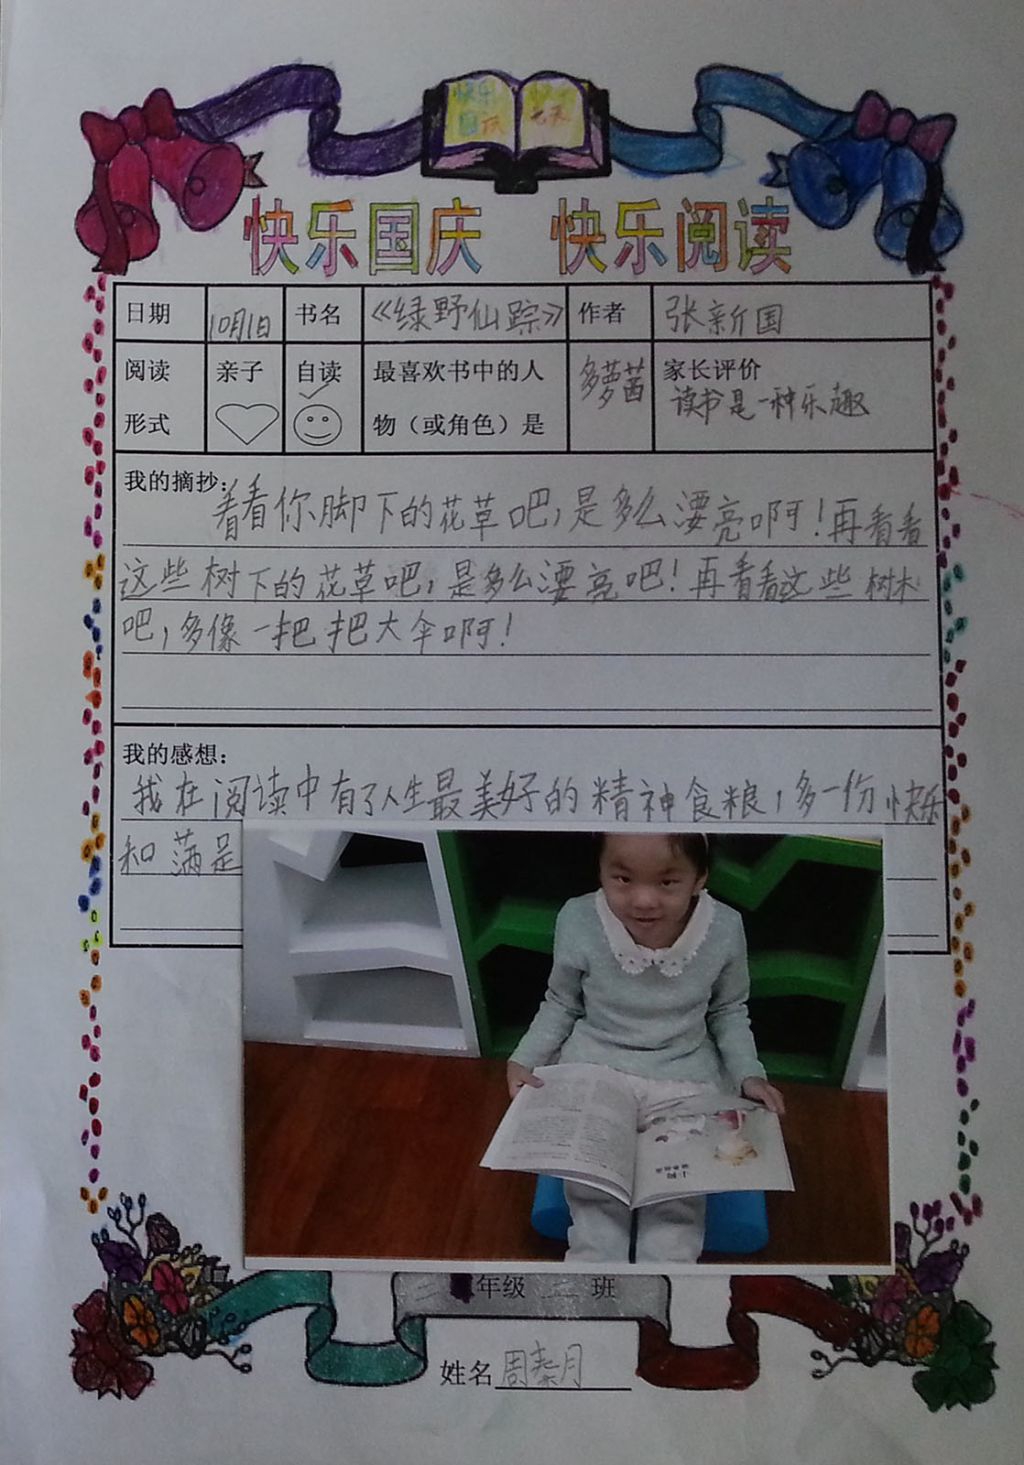 快乐 快乐
国庆 七天
快乐国庆 快乐阅读
日期 10月1日 书名 《绿野仙踪》 作者 张新国
阅读 亲子 自读 最喜欢书中的人 多萝茜 家长评价
形式 物（或角色）是 读书是一种乐趣
我的摘抄：
看看你脚下的花草吧，是多么漂亮啊！再看看
这些树下的花草吧，是多么漂亮吧！再看看这些树木
吧，多像一把把大伞啊！
我的感想：
我在阅读中有了人生最美好的精神食粮，多一份快乐
和满足
二年级 二 班
姓名 周秦月